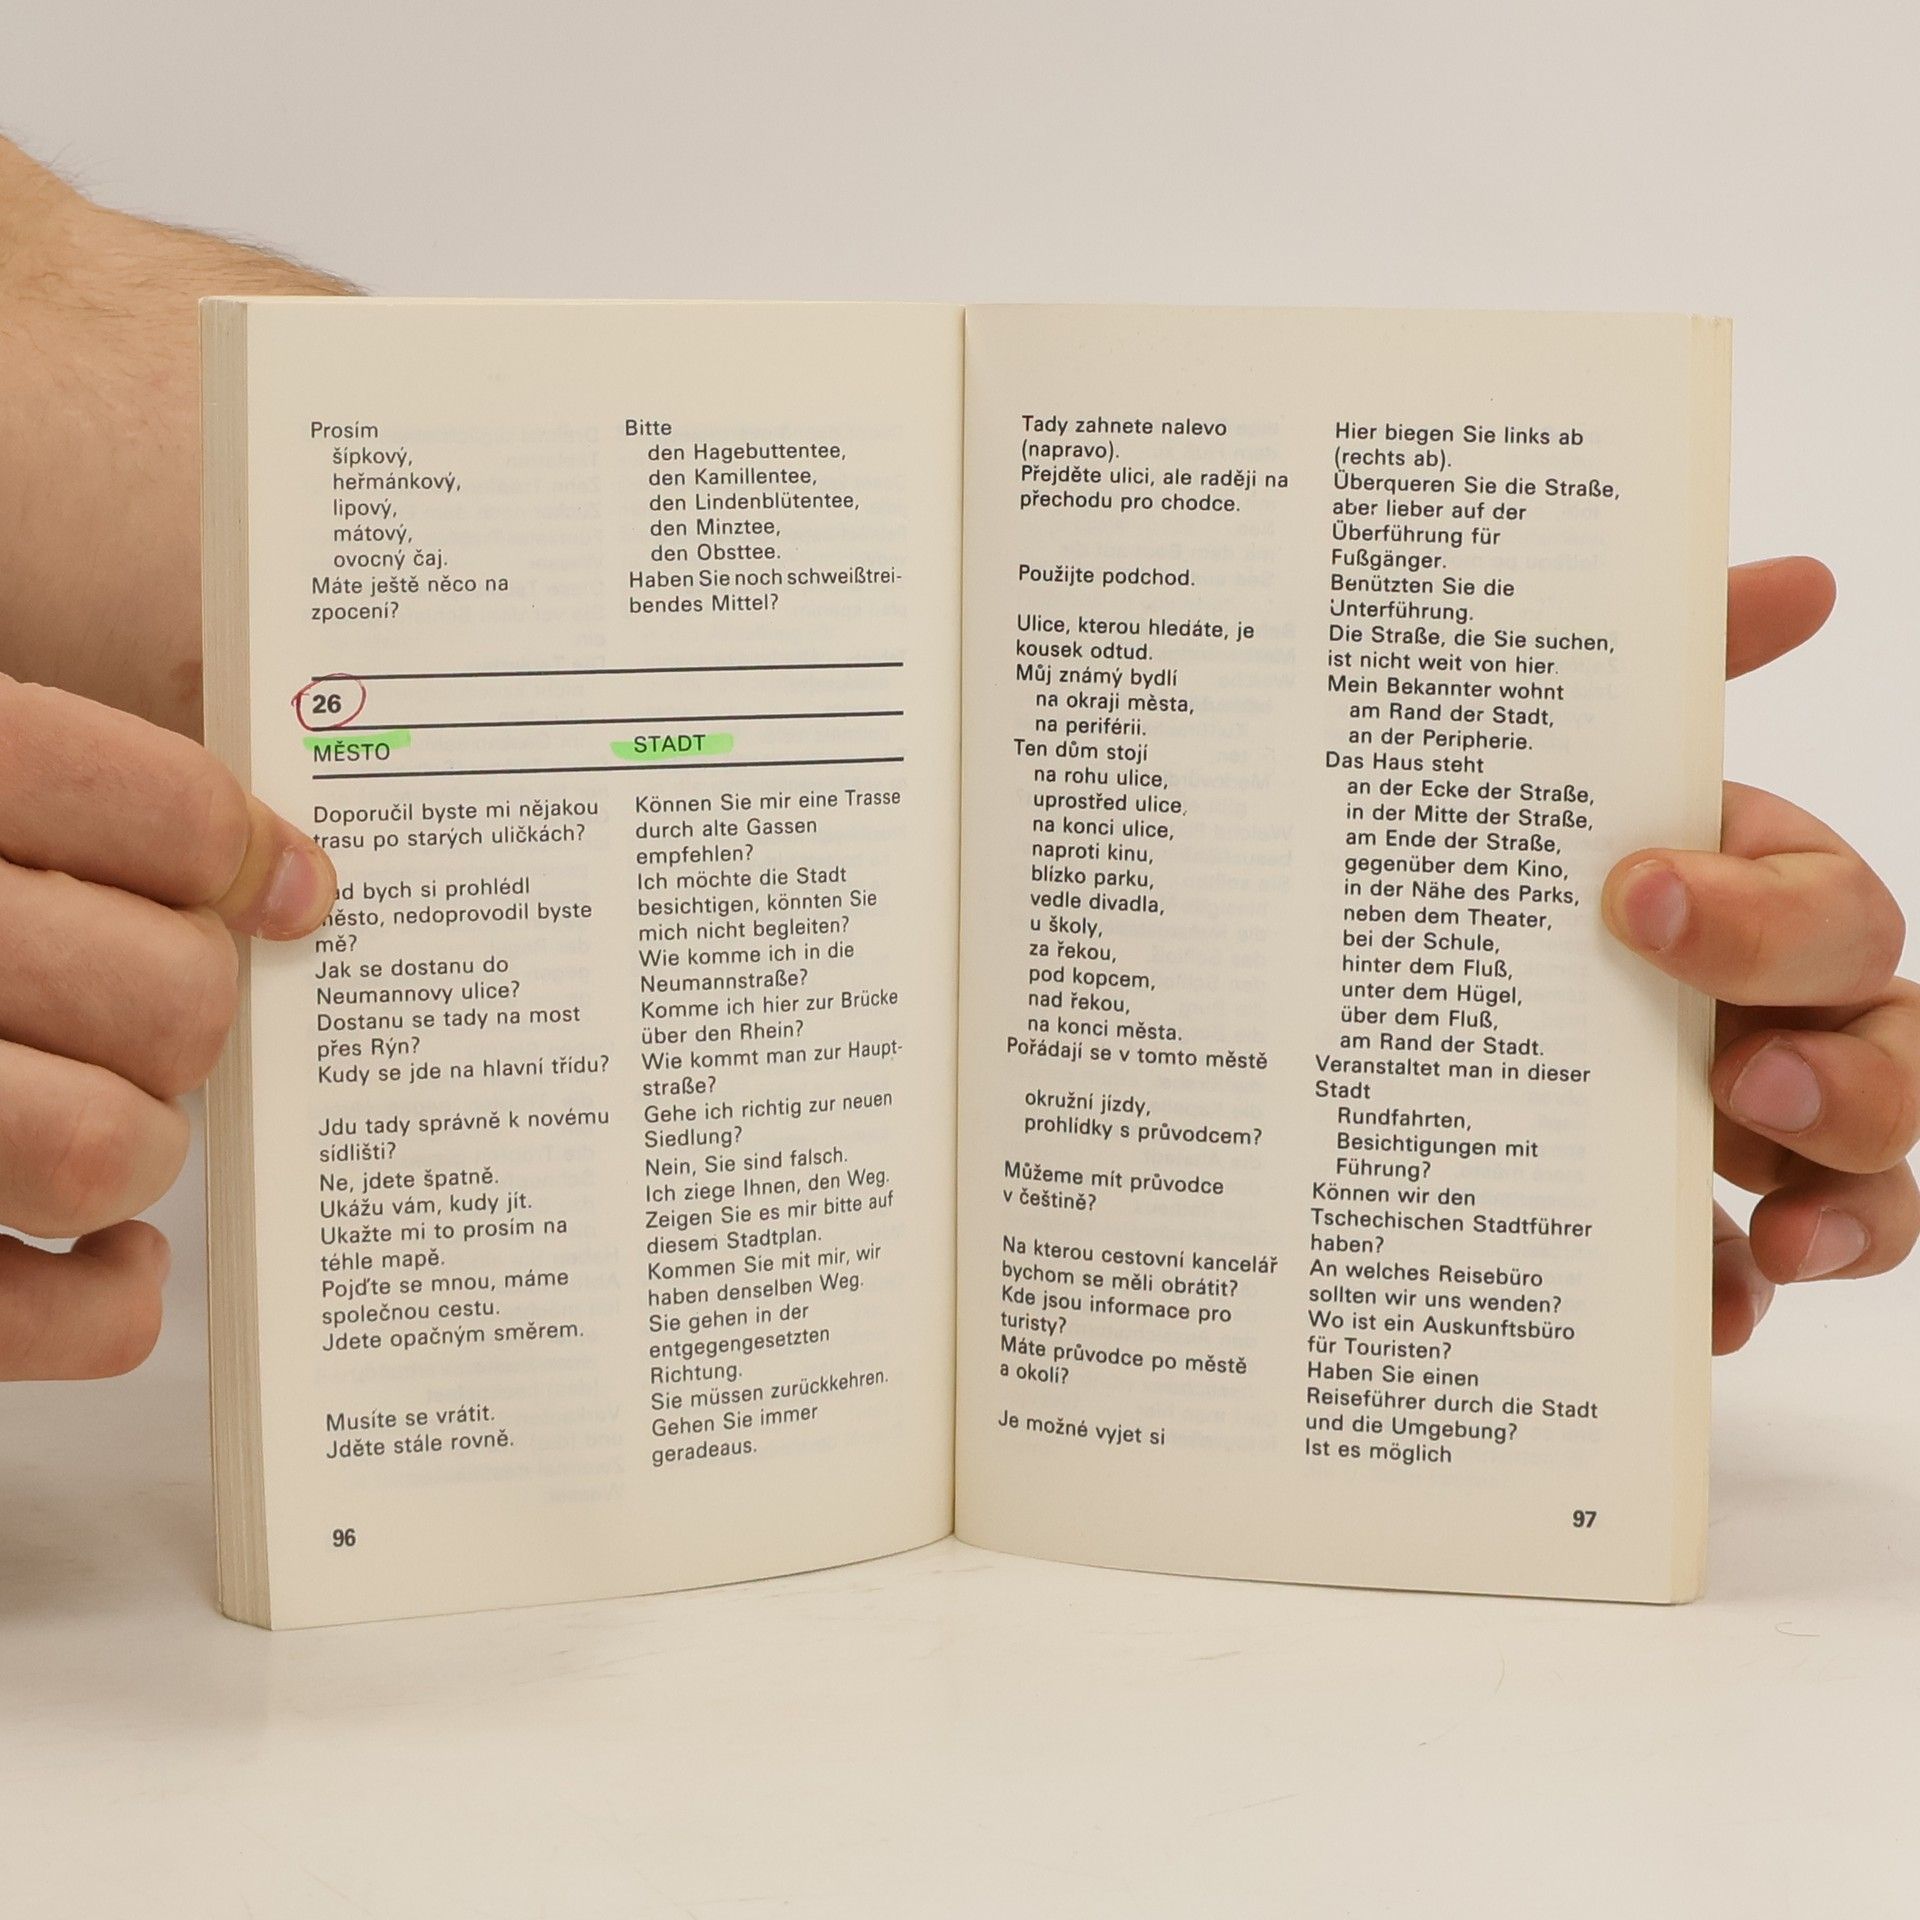 Prosím
šípkový,
heřmánkový,
lipový,
mátový,
ovocný čaj.
Máte ještě něco na
zpocení?
Bitte
den Hagebuttentee,
den Kamillentee,
den Lindenblütentee,
den Minztee,
den Obsttee.
Haben Sie noch schweißtrei-
bendes Mittel?
26
MĚSTO
STADT
Doporučil byste mi nějakou
trasu po starých uličkách?
bych si prohlédl
město, nedoprovodil byste
mě?
Jak se dostanu do
Neumannovy ulice?
Dostanu se tady na most
přes Rýn?
Kudy se jde na hlavní třídu?
Jdu tady správně k novému
sídlišti?
Ne, jdete špatně.
Ukážu vám, kudy jít.
Ukažte mi to prosím na
téhle mapě.
Pojďte se mnou, máme
společnou cestu.
Jdete opačným směrem.
Musíte se vrátit.
Jděte stále rovně.
Können Sie mir eine Trasse
durch alte Gassen
empfehlen?
Ich möchte die Stadt
besichtigen, könnten Sie
mich nicht begleiten?
Wie komme ich in die
Neumannstraße?
Komme ich hier zur Brücke
über den Rhein?
Wie kommt man zur Haupt-
straße?
Gehe ich richtig zur neuen
Siedlung?
Nein, Sie sind falsch.
Ich ziege Ihnen, den Weg.
Zeigen Sie es mir bitte auf
diesem Stadtplan.
Kommen Sie mit mir, wir
haben denselben Weg.
Sie gehen in der
entgegengesetzten
Richtung.
Sie müssen zurückkehren.
Gehen Sie immer
geradeaus.
96
Tady zahnete nalevo
(napravo).
Přejděte ulici, ale raději na
přechodu pro chodce.
Použijte podchod.
Ulice, kterou hledáte, je
kousek odtud.
Můj známý bydlí
na okraji města,
na periférii.
Ten dům stojí
na rohu ulice,
uprostřed ulice,
na konci ulice,
naproti kinu,
blízko parku,
vedle divadla,
u školy,
za řekou,
pod kopcem,
nad řekou,
na konci města.
Pořádají se v tomto městě
okružní jízdy,
prohlídky s průvodcem?
Můžeme mít průvodce
v češtině?
Na kterou cestovní kancelář
bychom se měli obrátit?
Kde jsou informace pro
turisty?
Máte průvodce po městě
a okolí?
Je možné vyjet si
Hier biegen Sie links ab
(rechts ab).
Überqueren Sie die Straße,
aber lieber auf der
Überführung für
Fußgänger.
Benützten Sie die
Unterführung.
Die Straße, die Sie suchen,
ist nicht weit von hier.
Mein Bekannter wohnt
am Rand der Stadt,
an der Peripherie.
Das Haus steht
an der Ecke der Straße,
in der Mitte der Straße,
am Ende der Straße,
gegenüber dem Kino,
in der Nähe des Parks,
neben dem Theater,
bei der Schule,
hinter dem Fluß,
unter dem Hügel,
über dem Fluß,
am Rand der Stadt.
Veranstaltet man in dieser
Stadt
Rundfahrten,
Besichtigungen mit
Führung?
Können wir den
Tschechischen Stadtführer
haben?
An welches Reisebüro
sollten wir uns wenden?
Wo ist ein Auskunftsbüro
für Touristen?
Haben Sie einen
Reiseführer durch die Stadt
und die Umgebung?
Ist es möglich
97